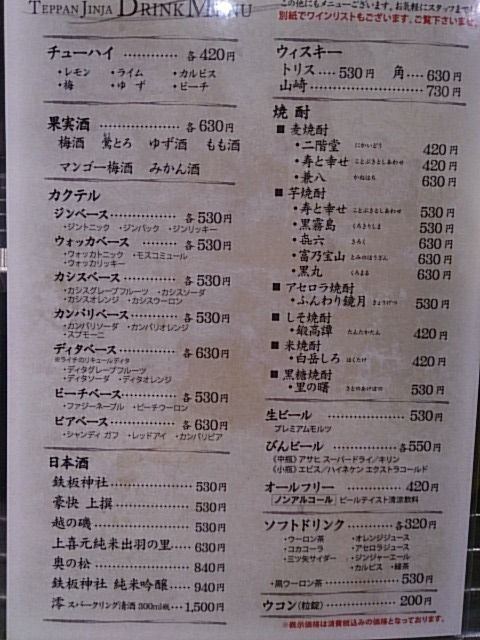 TEPPAN JINJA DRINK MENU
この他にもメニューございます。お気軽にスタッフまで
別紙でワインリストもございます。ご覧下さいませ
チューハイ 各420円
・レモン ・ライム ・カルピス
・梅 ・ゆず ・ピーチ
果実酒 各630円
梅酒 鶯とろ ゆず酒 もも酒
マンゴー梅酒 みかん酒
カクテル
ジンベース 各530円
・ジントニック ・ジンバック ・ジンリッキー
ウォッカベース 各530円
・ウォッカトニック ・モスコミュール
・ウォッカリッキー
カシスベース 各530円
・カシスグレープフルーツ ・カシスソーダ
・カシスオレンジ ・カシスウーロン
カンパリベース 各530円
・カンパリソーダ ・カンパリオレンジ
・スプモーニ
ディタベース 各630円
※ライチのリキュールディタ
・ディタグレープフルーツ
・ディタソーダ ・ディタオレンジ
ピーチベース 各530円
・ファジーネーブル ・ピーチウーロン
ビアベース 各630円
・シャンディガフ ・レッドアイ ・カンパリビア
日本酒
鉄板神社 530円
豪快 上撰 530円
越の磯 530円
上喜元純米出羽の里 630円
奥の松 840円
鉄板神社 純米吟醸 940円
澪 スパークリング清酒 300ml瓶 1,500円
ウィスキー
トリス 530円 角 630円
山崎 730円
焼酎
■ 麦焼酎
・二階堂 にかいどう 420円
・寿と幸せ ことぶきとしあわせ 420円
・兼八 かねはち 630円
■ 芋焼酎
・寿と幸せ ことぶきとしあわせ 530円
・黒霧島 くろきりしま 530円
・㐂六 きろく 630円
・富乃宝山 とみのほうざん 630円
・黒丸 くろまる 630円
■ アセロラ焼酎
・ふんわり鏡月 きょうげつ 530円
■ しそ焼酎
・鍛高譚 たんたかたん 420円
■ 米焼酎
・白岳しろ はくたけ 420円
■ 黒糖焼酎
・里の曙 さとのあけぼの 530円
生ビール 530円
プレミアムモルツ
びんビール 各550円
《中瓶》アサヒ スーパードライ／キリン
《小瓶》エビス／ハイネケン エクストラコールド
オールフリー 420円
ノンアルコール ビールテイスト清涼飲料
ソフトドリンク 各320円
・ウーロン茶 ・オレンジジュース
・コカコーラ ・アセロラジュース
・三ツ矢サイダー ・ジンジャーエール
・カルピス ・緑茶
・黒ウーロン茶 530円
ウコン(粒錠) 200円
※表示価格は消費税込みの価格となっております。